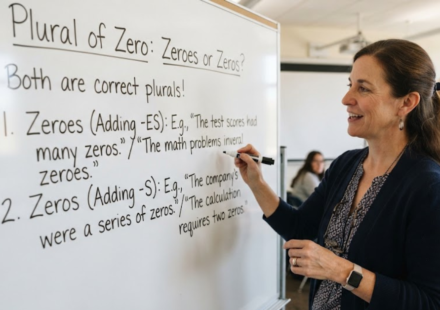 Plural of Zero: Zeroes or Zeros?
Both are correct plurals!
1. Zeroes (Adding -ES): E.g., "The test scores had
many zeros." / "The math problems invera!
zeroes."
2. Zeros (Adding -S): E.g., "The company's
were a series of zeros." / "The calculation
requires two zeros."